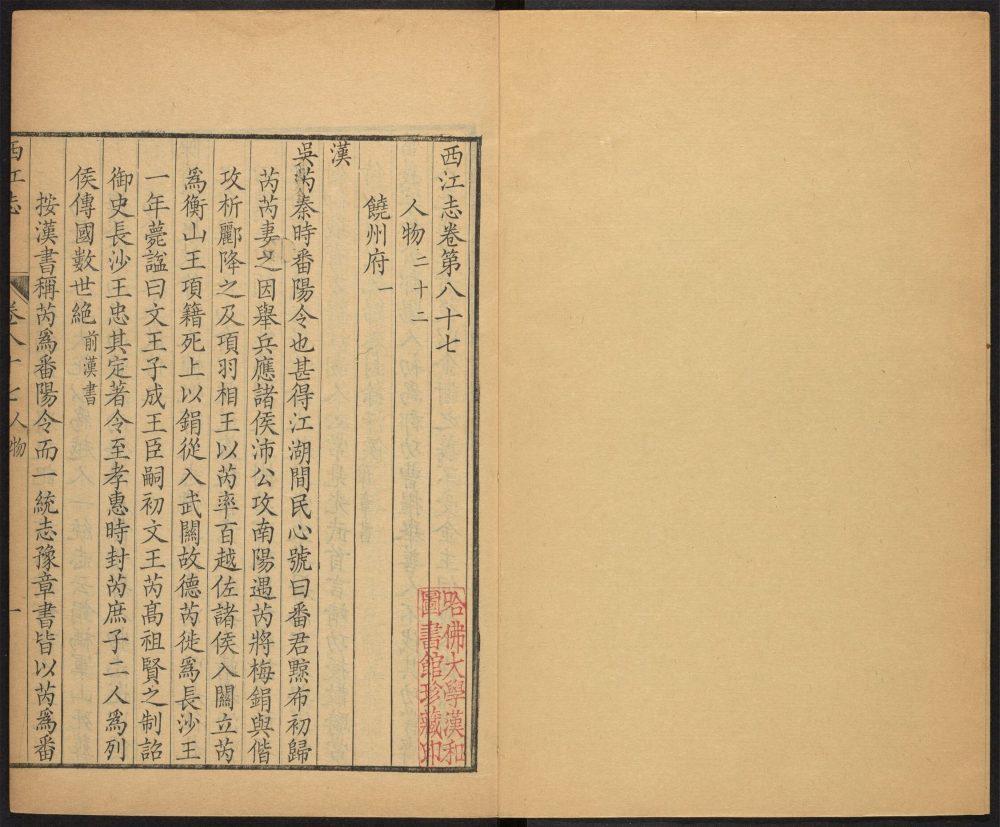 西江志卷第八十七
人物二十二
饒州府一
漢
吳芮秦時番陽令也甚得江湖間民心號曰番君黥布初歸
芮芮妻之因舉兵應諸侯沛公攻南陽遇芮將梅鋗與偕
攻析酈降之及項羽相王以芮率百越佐諸侯入關立芮
爲衡山王項籍死上以鋗從入武關故德芮徙爲長沙王
一年薨諡曰文王子成王臣嗣初文王芮髙祖賢之制詔
御史長沙王忠其定著令至孝惠時封芮庶子二人爲列
侯傳國數世絶前漢書
按漢書稱芮爲番陽令而一統志豫章書皆以芮爲番
西江志
卷八十七人物
一
哈佛大學漢和
圖書館珍藏印